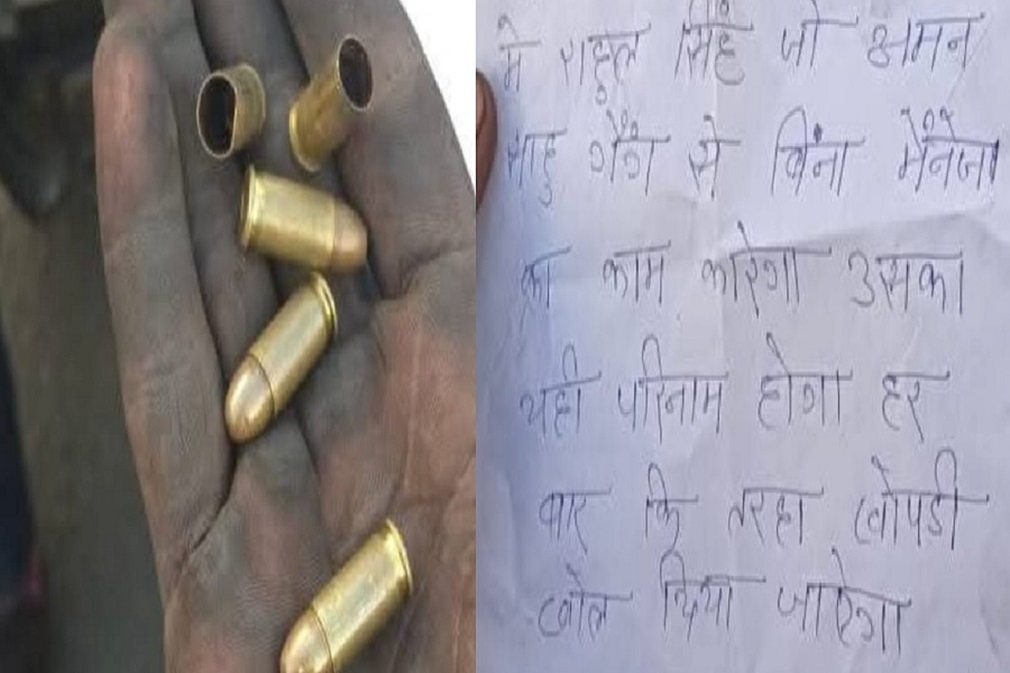 मे राहुल सिंह जो अमन
साहु गैंग से बिंना मैनेज
का काम करेगा उसका
यही परिनाम होगा हर
बार कि तरहा खोपडी
खोल दिया जाऐगा